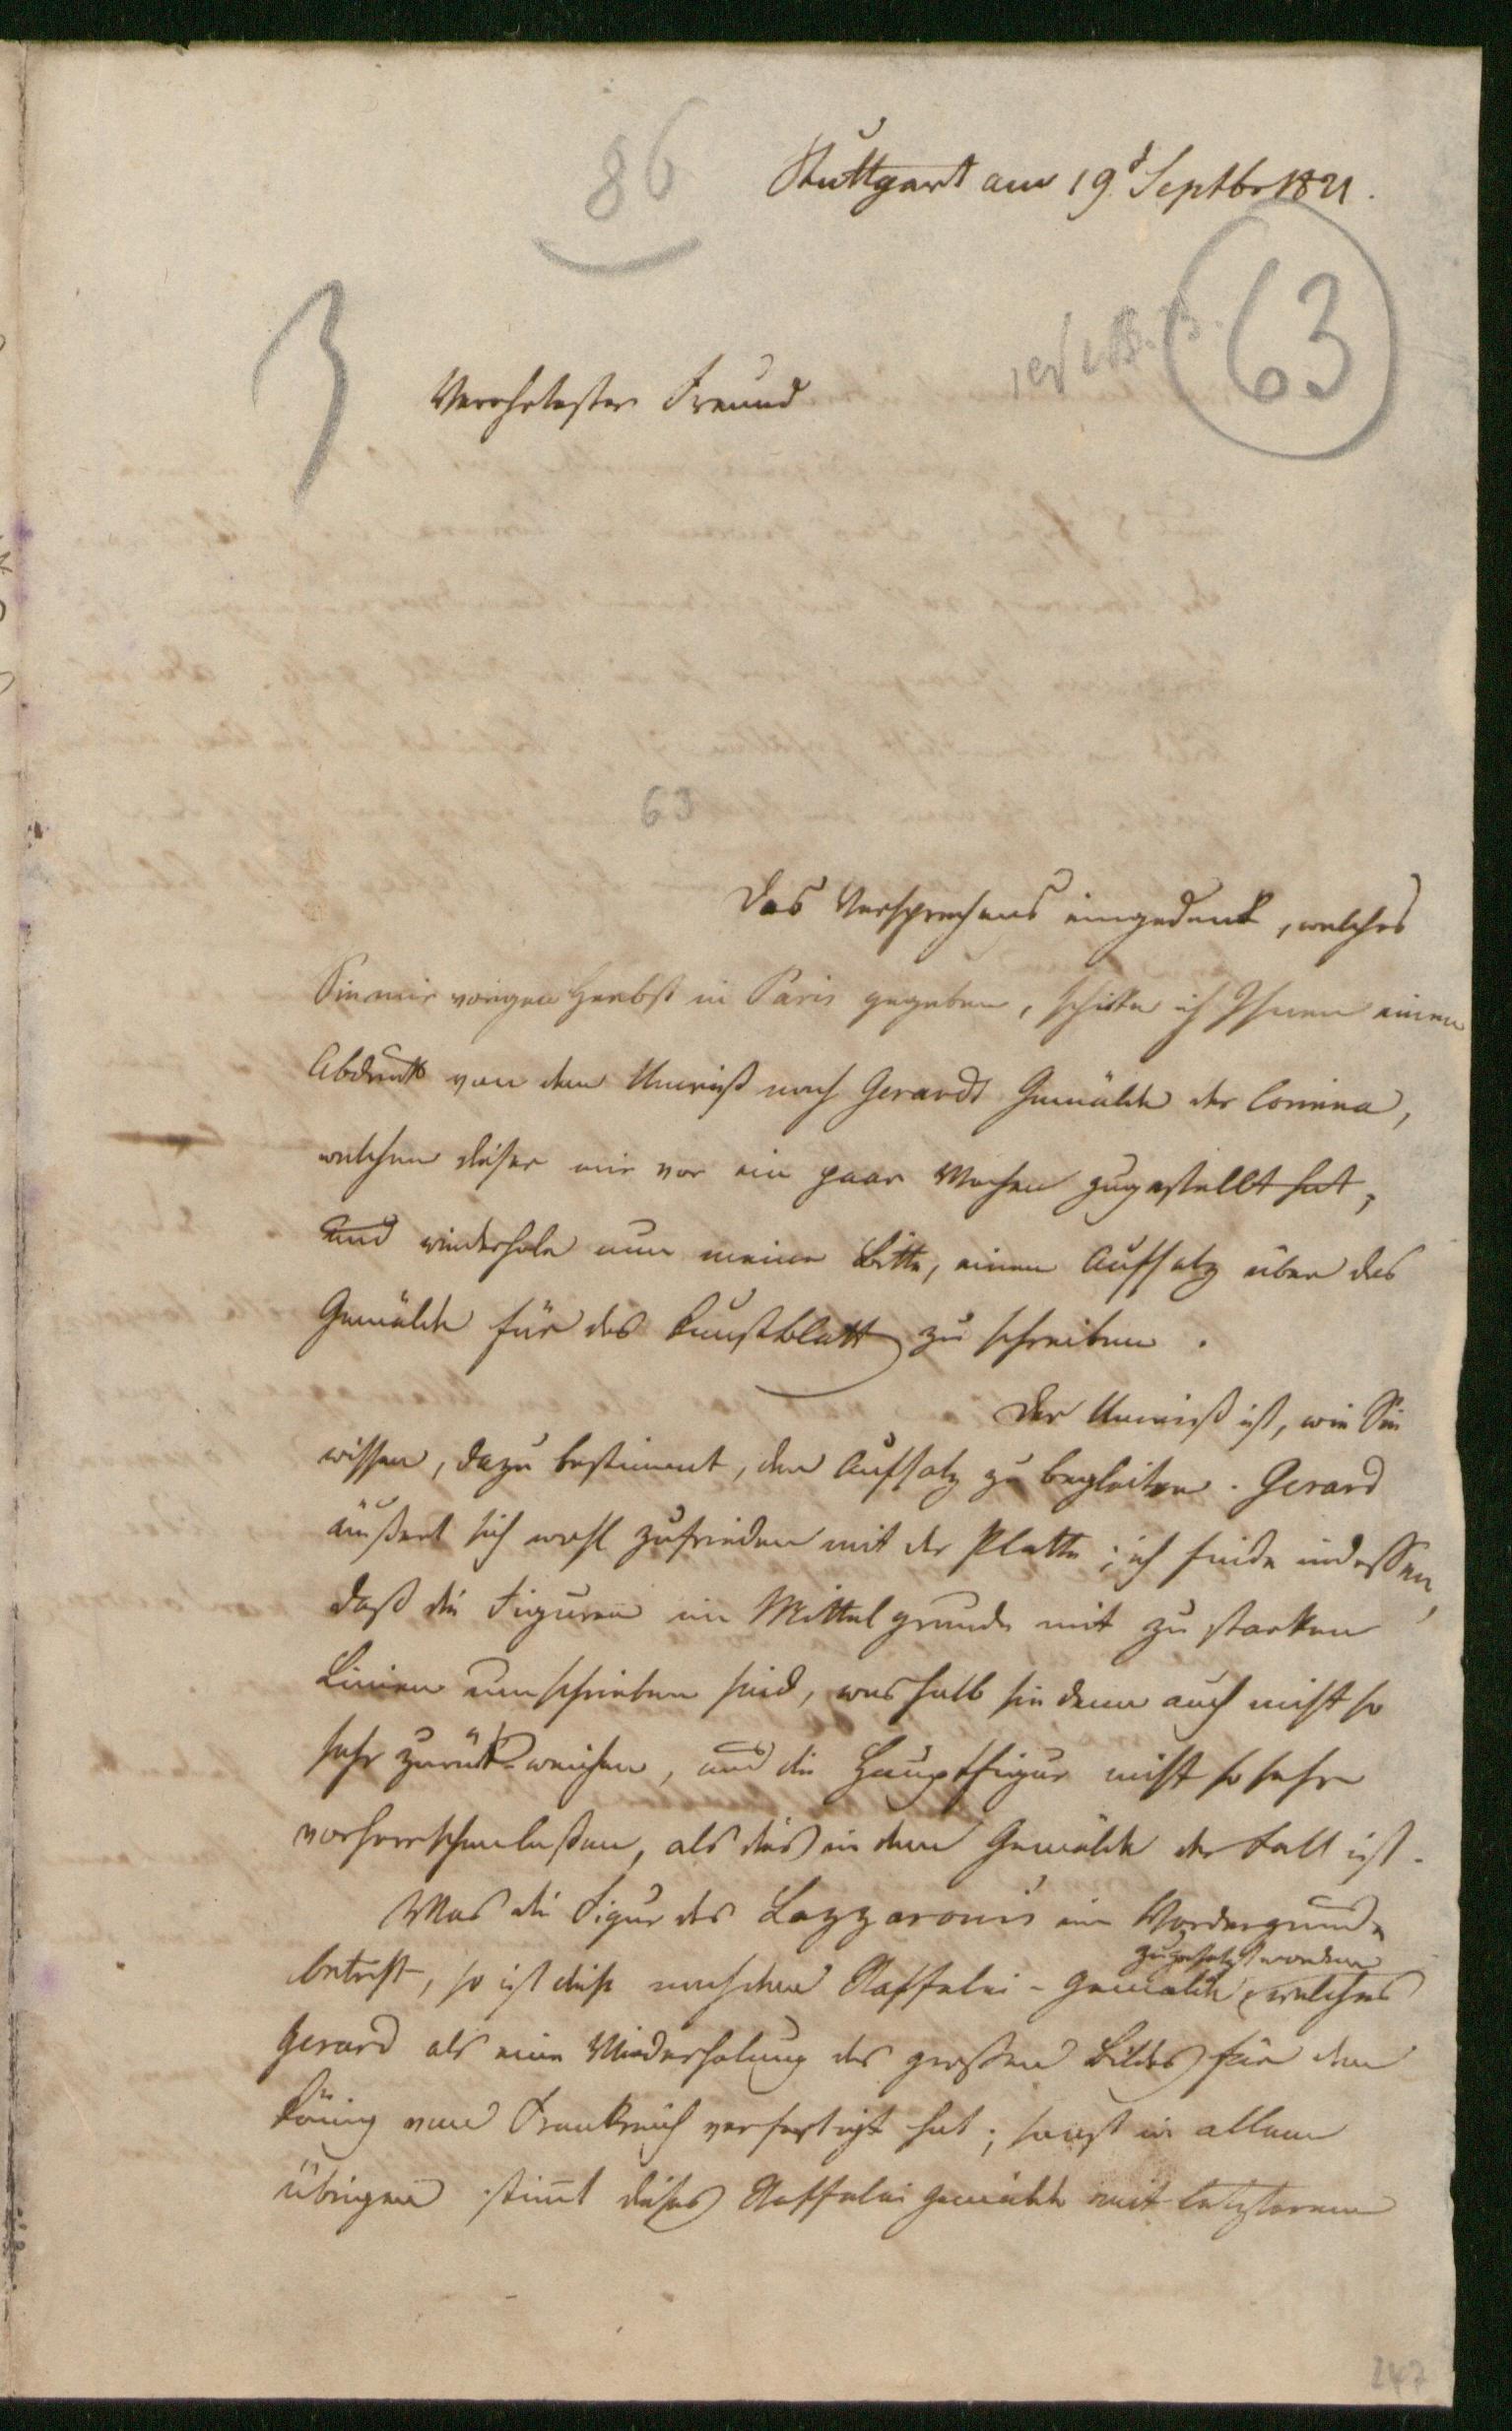 86
Stuttgart am 19t Septbr 1821.
63
Verehrtester Freund
63
Des Versprechens eingedenk, welches
Sie mir vorigen Herbst in Paris gegeben, schikke ich Ihnen einen
Abdruk von dem Umriß nach Gerards Gemälde der Corinna,
welchen dieser mir vor ein paar Wochen zugestellt hat,
und wiederhole nun meine Bitte, einen Aufsatz über das
Gemälde für das Kunstblatt zu schreiben.
Der Umriß ist, wie Sie
wissen, dazu bestimmt, den Aufsatz zu begleiten. Gerard
äußert sich wohl zufrieden mit der Platte; ich finde indessen,
daß die Figuren im Mittelgrunde mit zu starken
Linien umschrieben sind, weshalb sie denn auch nicht so
sehr zurük-weichen, und die Hauptfigur nicht so sehr
vorherrschen laßen, als dies in dem Gemälde der Fall ist.
Was die Figur des Lazzaroni's im Vordergrunde
zugesetzt worden
betrift, so ist diese in dem Staffelei-Gemälde, welches
Gerard als eine Wiederholung des großen Bildes für den
König von Frankreich verfertigt hat; sonst in allem
übrigen stimt dieses Staffelei Gemälde mit letzterem
247